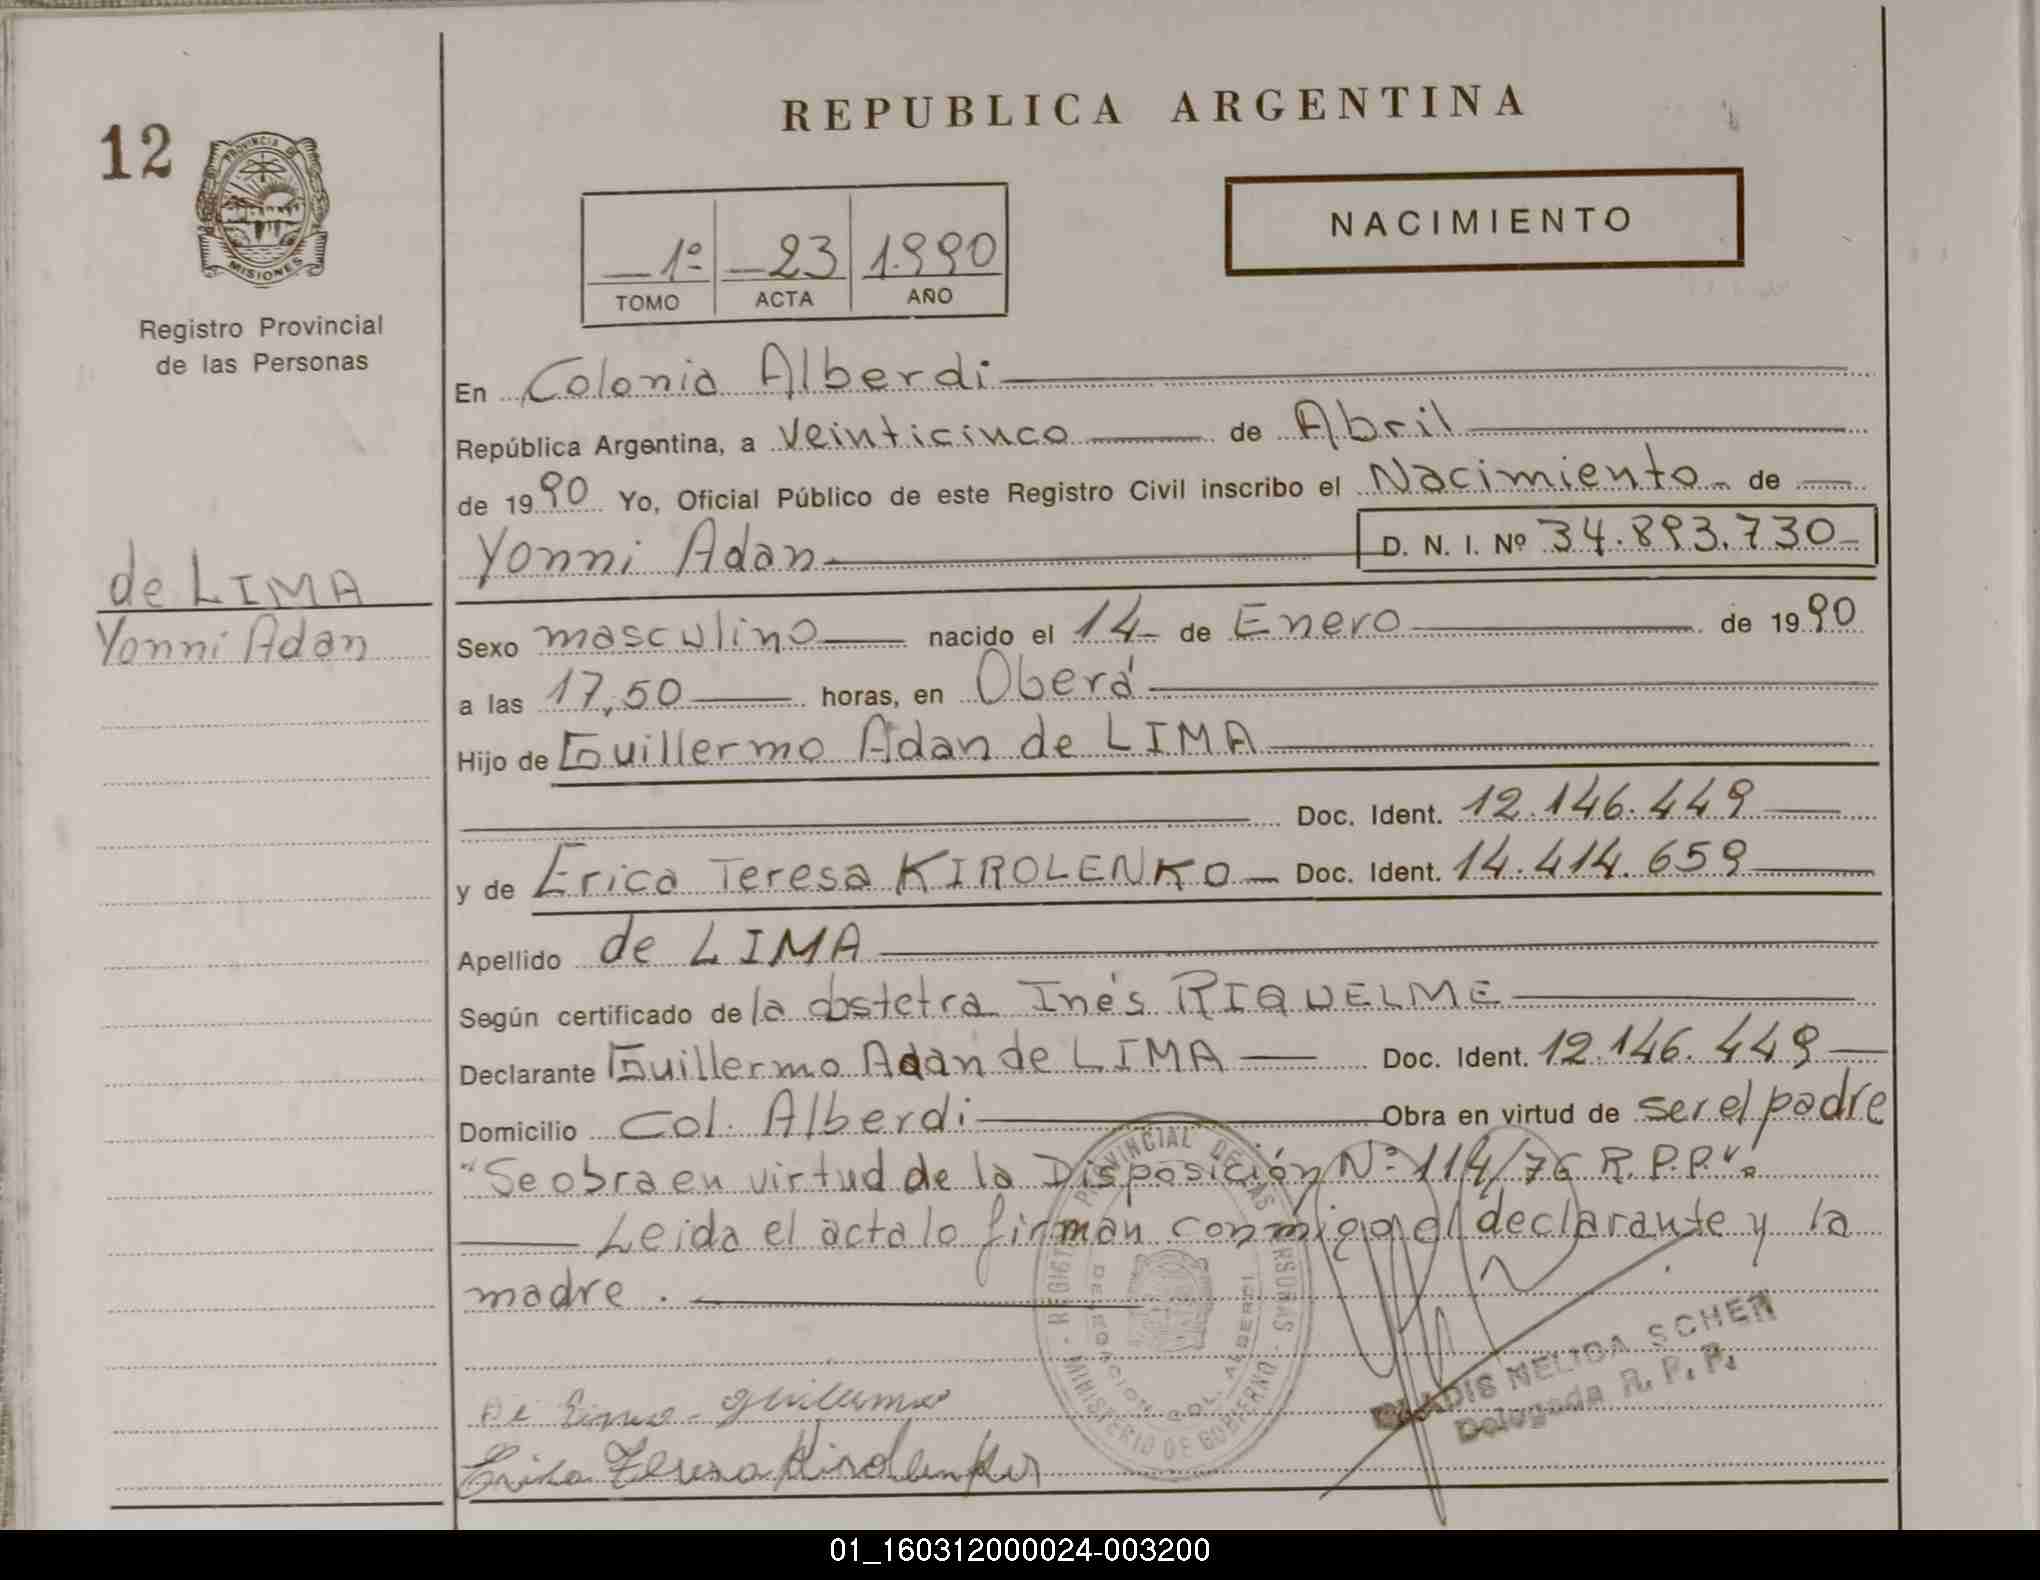 REPUBLICA ARGENTINA
12
PROVINCIA DE
MISIONES
Registro Provincial
de las Personas
NACIMIENTO
1º 23 1.990
TOMO ACTA AÑO
En Colonia Alberdi
República Argentina, a veinticinco de Abril
de 1990 Yo, Oficial Público de este Registro Civil inscribo el Nacimiento de
Yonni Adan D. N. I. Nº 34.893.730
de LIMA
Yonni Adan
Sexo masculino nacido el 14 de Enero de 1990
a las 17,50 horas, en Oberá
Hijo de Guillermo Adan de LIMA
Doc. Ident. 12.146.449
y de Erica Teresa KIROLENKO Doc. Ident. 14.414.659
Apellido de LIMA
Según certificado de la obstetra Inés RIQUELME
Declarante Guillermo Adan de LIMA Doc. Ident. 12.146.449
Domicilio Col. Alberdi Obra en virtud de ser el padre
"Se obra en virtud de la Disposición Nº 114/76 R.P.P".
Leida el acta lo firman conmigo el declarante y la
madre.
REGISTRO PROVINCIAL DE LAS PERSONAS - MINISTERIO DE GOBIERNO -
DELEGACION COL. ALBERDI
GLADIS NELIDA SCHER
Delegada R. P. P.
De Lima - Guillermo
Erika Teresa Kirolenko
01_160312000024-003200